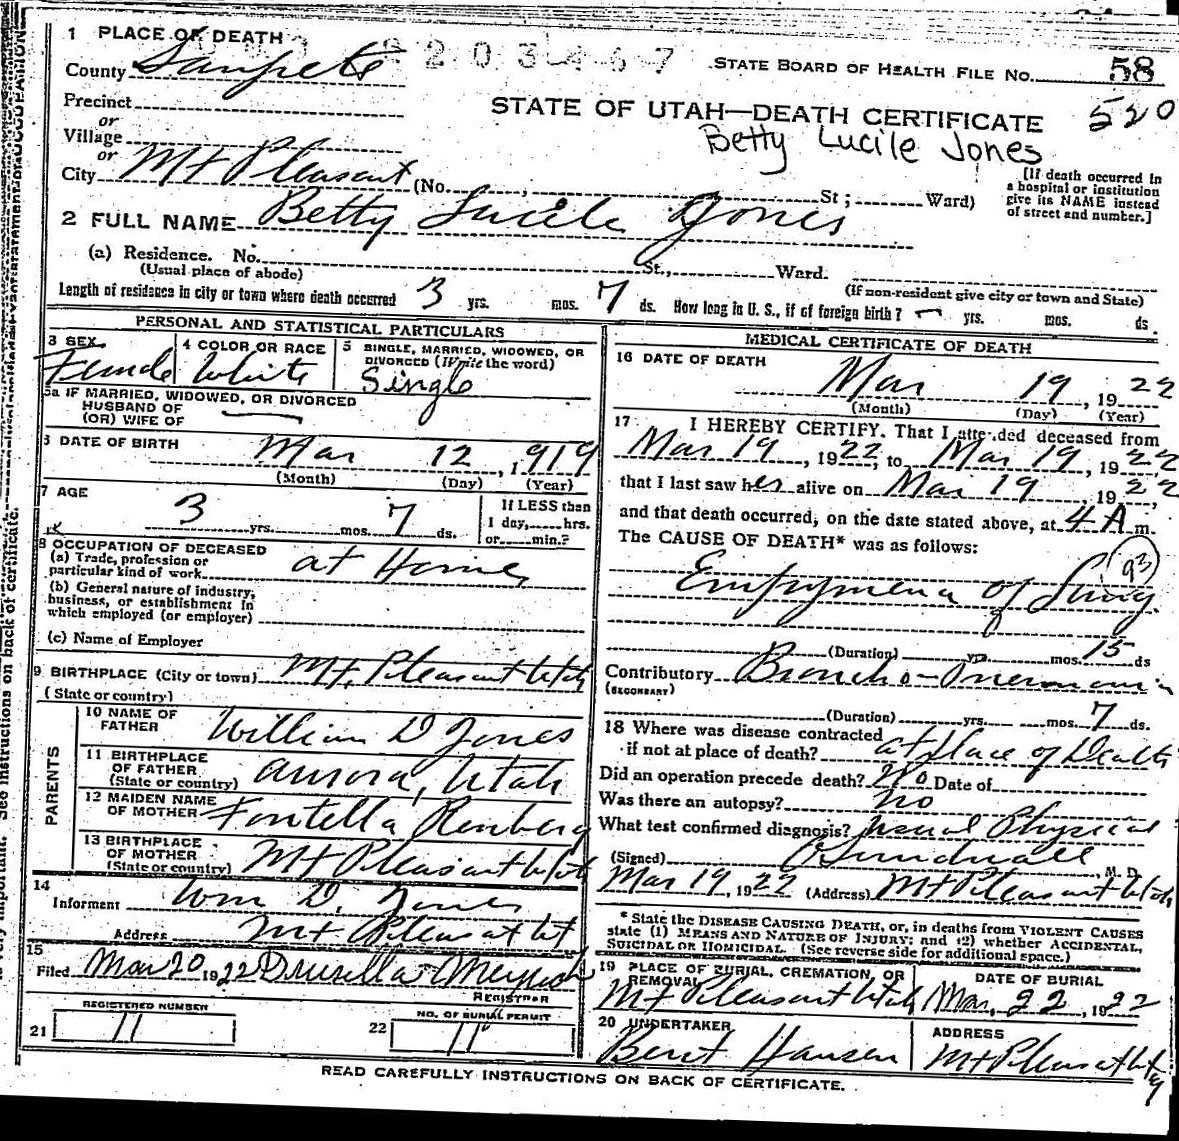 1 PLACE OF DEATH
203467
County Sanpete
STATE BOARD OF HEALTH FILE NO. 58
Precinct
or
STATE OF UTAH—DEATH CERTIFICATE 520
Village
Betty Lucile Jones
or
City Mt Pleasant (No. , St ; Ward)
[If death occurred in
a hospital or institution
give its NAME instead
of street and number.]
2 FULL NAME Betty Lucile Jones
(a) Residence. No. St., Ward.
(Usual place of abode)
(If non-resident give city or town and State)
Length of residence in city or town where death occurred 3 yrs. mos. 7 ds. How long in U. S., if of foreign birth? — yrs. mos. ds.
PERSONAL AND STATISTICAL PARTICULARS
3 SEX
Female
4 COLOR OR RACE
White
5 SINGLE, MARRIED, WIDOWED, OR
DIVORCED (Write the word)
Single
5a IF MARRIED, WIDOWED, OR DIVORCED
HUSBAND OF
(OR) WIFE OF —
6 DATE OF BIRTH
Mar 12, 1919
(Month) (Day) (Year)
7 AGE
3 yrs. mos. 7 ds.
If LESS than
1 day, hrs.
or min.?
8 OCCUPATION OF DECEASED
(a) Trade, profession or
particular kind of work at Home
(b) General nature of industry,
business, or establishment in
which employed (or employer)
(c) Name of Employer
9 BIRTHPLACE (City or town) Mt. Pleasant Utah
(State or country)
PARENTS
10 NAME OF
FATHER William D Jones
11 BIRTHPLACE
OF FATHER
(State or country) Aurora, Utah
12 MAIDEN NAME
OF MOTHER Fontella Renberg
13 BIRTHPLACE
OF MOTHER
(State or country) Mt Pleasant Utah
14
Informent Wm D. Jones
Address Mt Pleasant Ut
15
Filed Mar 20 1922 Drusilla
REGISTRAR
REGISTERED NUMBER
21 11
NO. OF BURIAL PERMIT
22 11
MEDICAL CERTIFICATE OF DEATH
16 DATE OF DEATH
Mar 19, 1922
(Month) (Day) (Year)
17 I HEREBY CERTIFY. That I attended deceased from
Mar 19, 1922, to Mar 19, 1922
that I last saw her alive on Mar 19, 1922,
and that death occurred, on the date stated above, at 4 A m.
The CAUSE OF DEATH* was as follows:
93
Empymena of Lung
(Duration) yrs. mos. 15 ds
Contributory Broncho-Pneumonia
(SECONDARY)
(Duration) yrs. mos. 7 ds.
18 Where was disease contracted
if not at place of death? at place of Death
Did an operation precede death? No Date of
Was there an autopsy? no
What test confirmed diagnosis? Usual Physical
(Signed) , M. D.
Mar 19, 1922 (Address) Mt Pleasant Utah
* State the DISEASE CAUSING DEATH, or, in deaths from VIOLENT CAUSES
state (1) MEANS AND NATURE OF INJURY; and (2) whether ACCIDENTAL,
SUICIDAL OR HOMICIDAL. (See reverse side for additional space.)
19 PLACE OF BURIAL, CREMATION, OR
REMOVAL
Mt Pleasant Utah
DATE OF BURIAL
Mar. 22, 1922
20 UNDERTAKER
Bent Hansen
ADDRESS
Mt Pleasant Utah
READ CAREFULLY INSTRUCTIONS ON BACK OF CERTIFICATE.
See instructions on back of certificate.